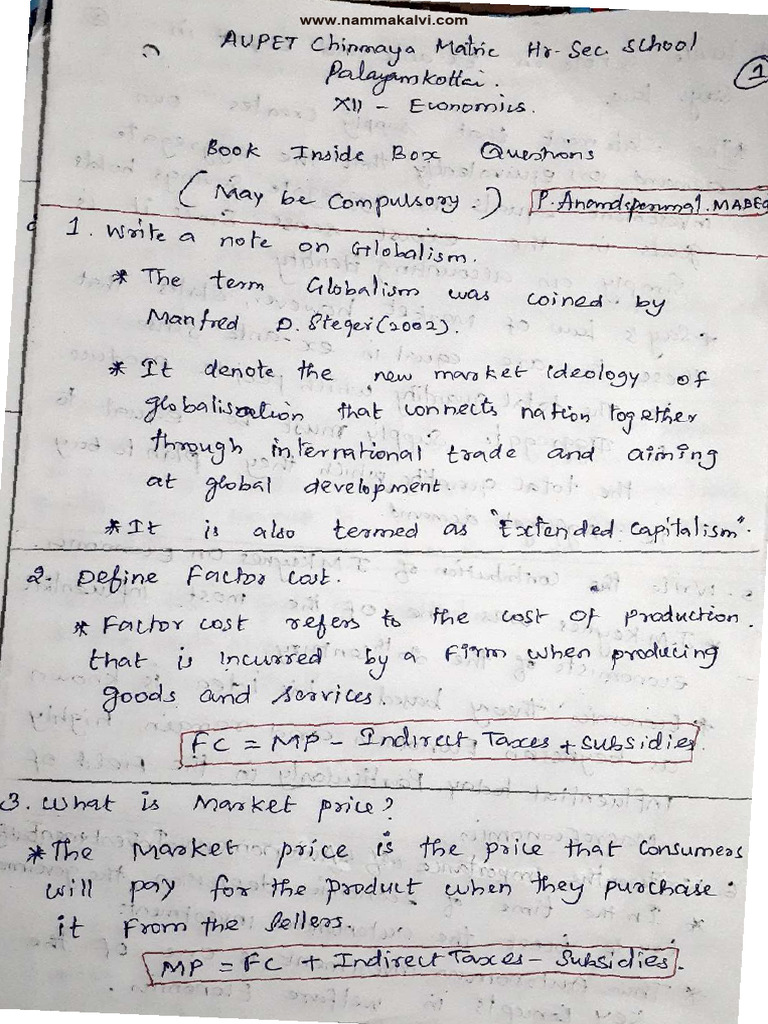 www.nammakalvi.com
AUPET Chinmaya Matric Hr-Sec. School
Palayamkottai.
1
XII - Economics.
Book Inside Box Questions
(May be Compulsory.)
P. Anandsperumal. MABEd
1. Write a note on Globalism.
* The term Globalism was coined by
Manfred D. Steger (2002).
* It denote the new market ideology of
globalisation that connects nation together
through international trade and aiming
at global development.
* It is also termed as "Extended capitalism".
2. Define Factor cost.
* Factor cost refers to the cost of production.
that is incurred by a Firm when producing
goods and services.
FC = MP - Indirect Taxes + Subsidies.
3. What is Market price?
* The Market price is the price that consumers
will pay for the product when they purchase
it from the sellers.
MP = FC + Indirect Taxes - Subsidies.